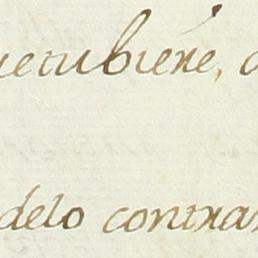 uetubiere,
delo contrar